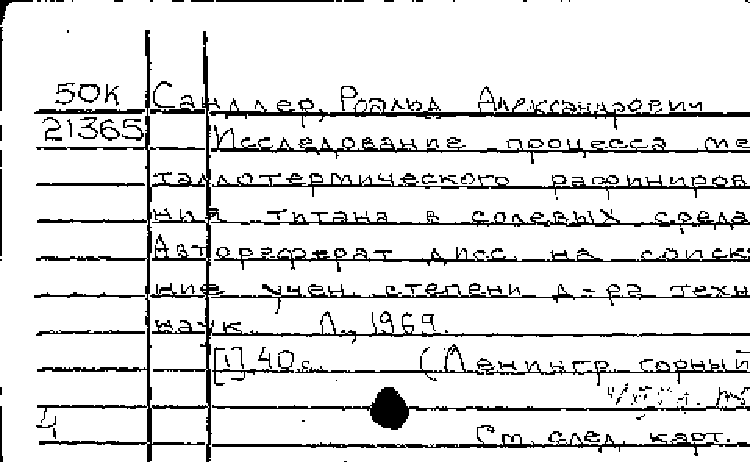 50К Сандлер, Роальд Александрович
21365 Исследование процесса ме
таллотермического рафиниров
ния титана в солевых среда
Автореферат дисс. на соиск
ние учен. степени д-ра техн
наук. Л., 1969.
[1], 40 с. (Ленингр. горный
Ч
См. след. карт.